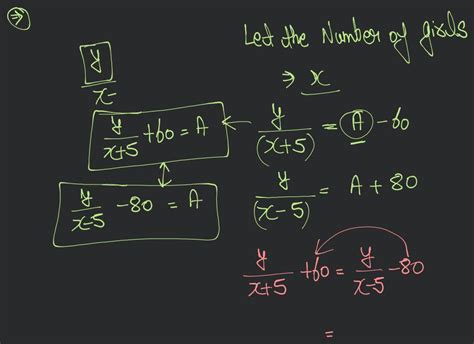 ⇒
Let the Number of girls
⇒ x
y/x
y/(x+5) = A - 60
y/x+5 + 60 = A
y/(x-5) = A + 80
y/x-5 - 80 = A
y/x+5 + 60 = y/x-5 - 80
=